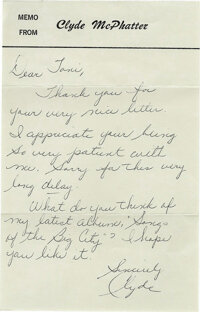 MEMO
FROM
Clyde McPhatter
Dear Toni,
Thank you for
your very nice letter.
I appreciate your being
so very patient with
me. Sorry for this very
long delay.
What do you think of
my latest album, "Songs
of the Big City"? I hope
you like it.
Sincerely
Clyde